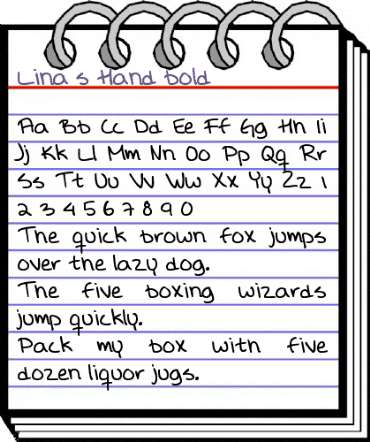 Lina s Hand bold
Aa Bb Cc Dd Ee Ff Gg Hh Ii
Jj Kk Ll Mm Nn Oo Pp Qq Rr
Ss Tt Uu Vv Ww Xx Yy Zz 1
2 3 4 5 6 7 8 9 0
The quick brown fox jumps
over the lazy dog.
The five boxing wizards
jump quickly.
Pack my box with five
dozen liquor jugs.